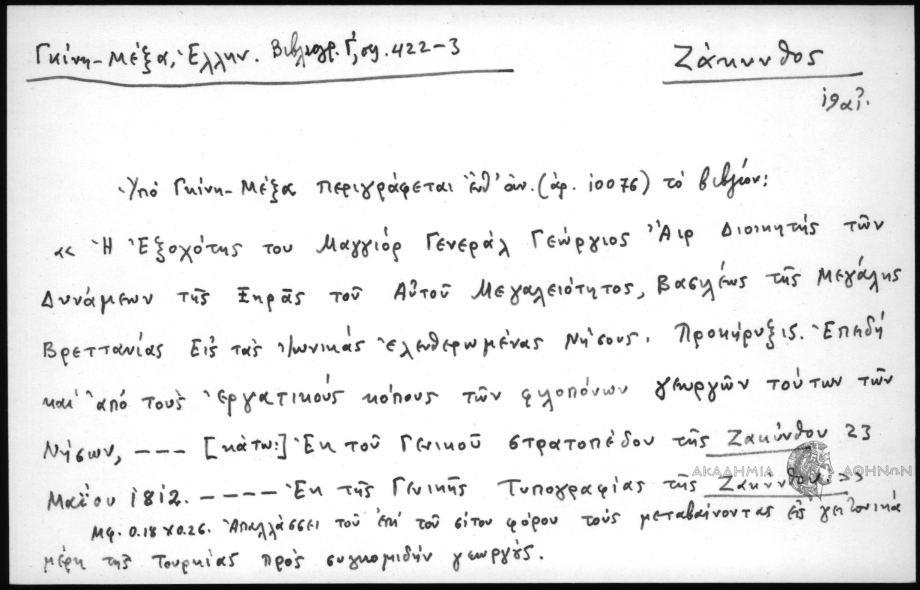 Γκίνη-Μέξα, Ἑλλην. Βιβλιογρ. Γ', σς. 422-3
Ζάκυνθος
19 αἰ.
Ὑπό Γκίνη-Μέξα περιγράφεται ἐνθ' ἀν. (ἀρ. 10076) τό βιβλίον:
« Ἡ Ἐξοχότης του Μαγγιόρ Γενεράλ Γεώργιος Ἄιρ Διοικητής τῶν
Δυνάμεων τῆς Ξηρᾶς τοῦ Αὐτοῦ Μεγαλειότητος, Βασιλέως τῆς Μεγάλης
Βρεττανίας Εἰς τάς Ἰωνικάς ἐλευθερωμένας Νήσους. Προκήρυξις. Ἐπειδή
και ἀπό τούς ἐργατικούς κόπους τῶν φιλοπόνων γεωργῶν τούτων τῶν
Νήσων, --- [κάτω:] Ἐκ τοῦ Γενικοῦ στρατοπέδου τῆς Ζακύνθου 23
Μαΐου 1812. ---- Ἐκ τῆς Γενικῆς Τυπογραφίας τῆς Ζακύνθου »
ΑΚΑΔΗΜΙΑ ΑΘΗΝΩΝ
Μφ. 0.18 x 0.26. Ἀπαλλάσσει τοῦ ἐπί τοῦ σίτου φόρου τούς μεταβαίνοντας εἰς γειτονικά
μέρη τῆς Τουρκίας πρός συγκομιδήν γεωργούς.